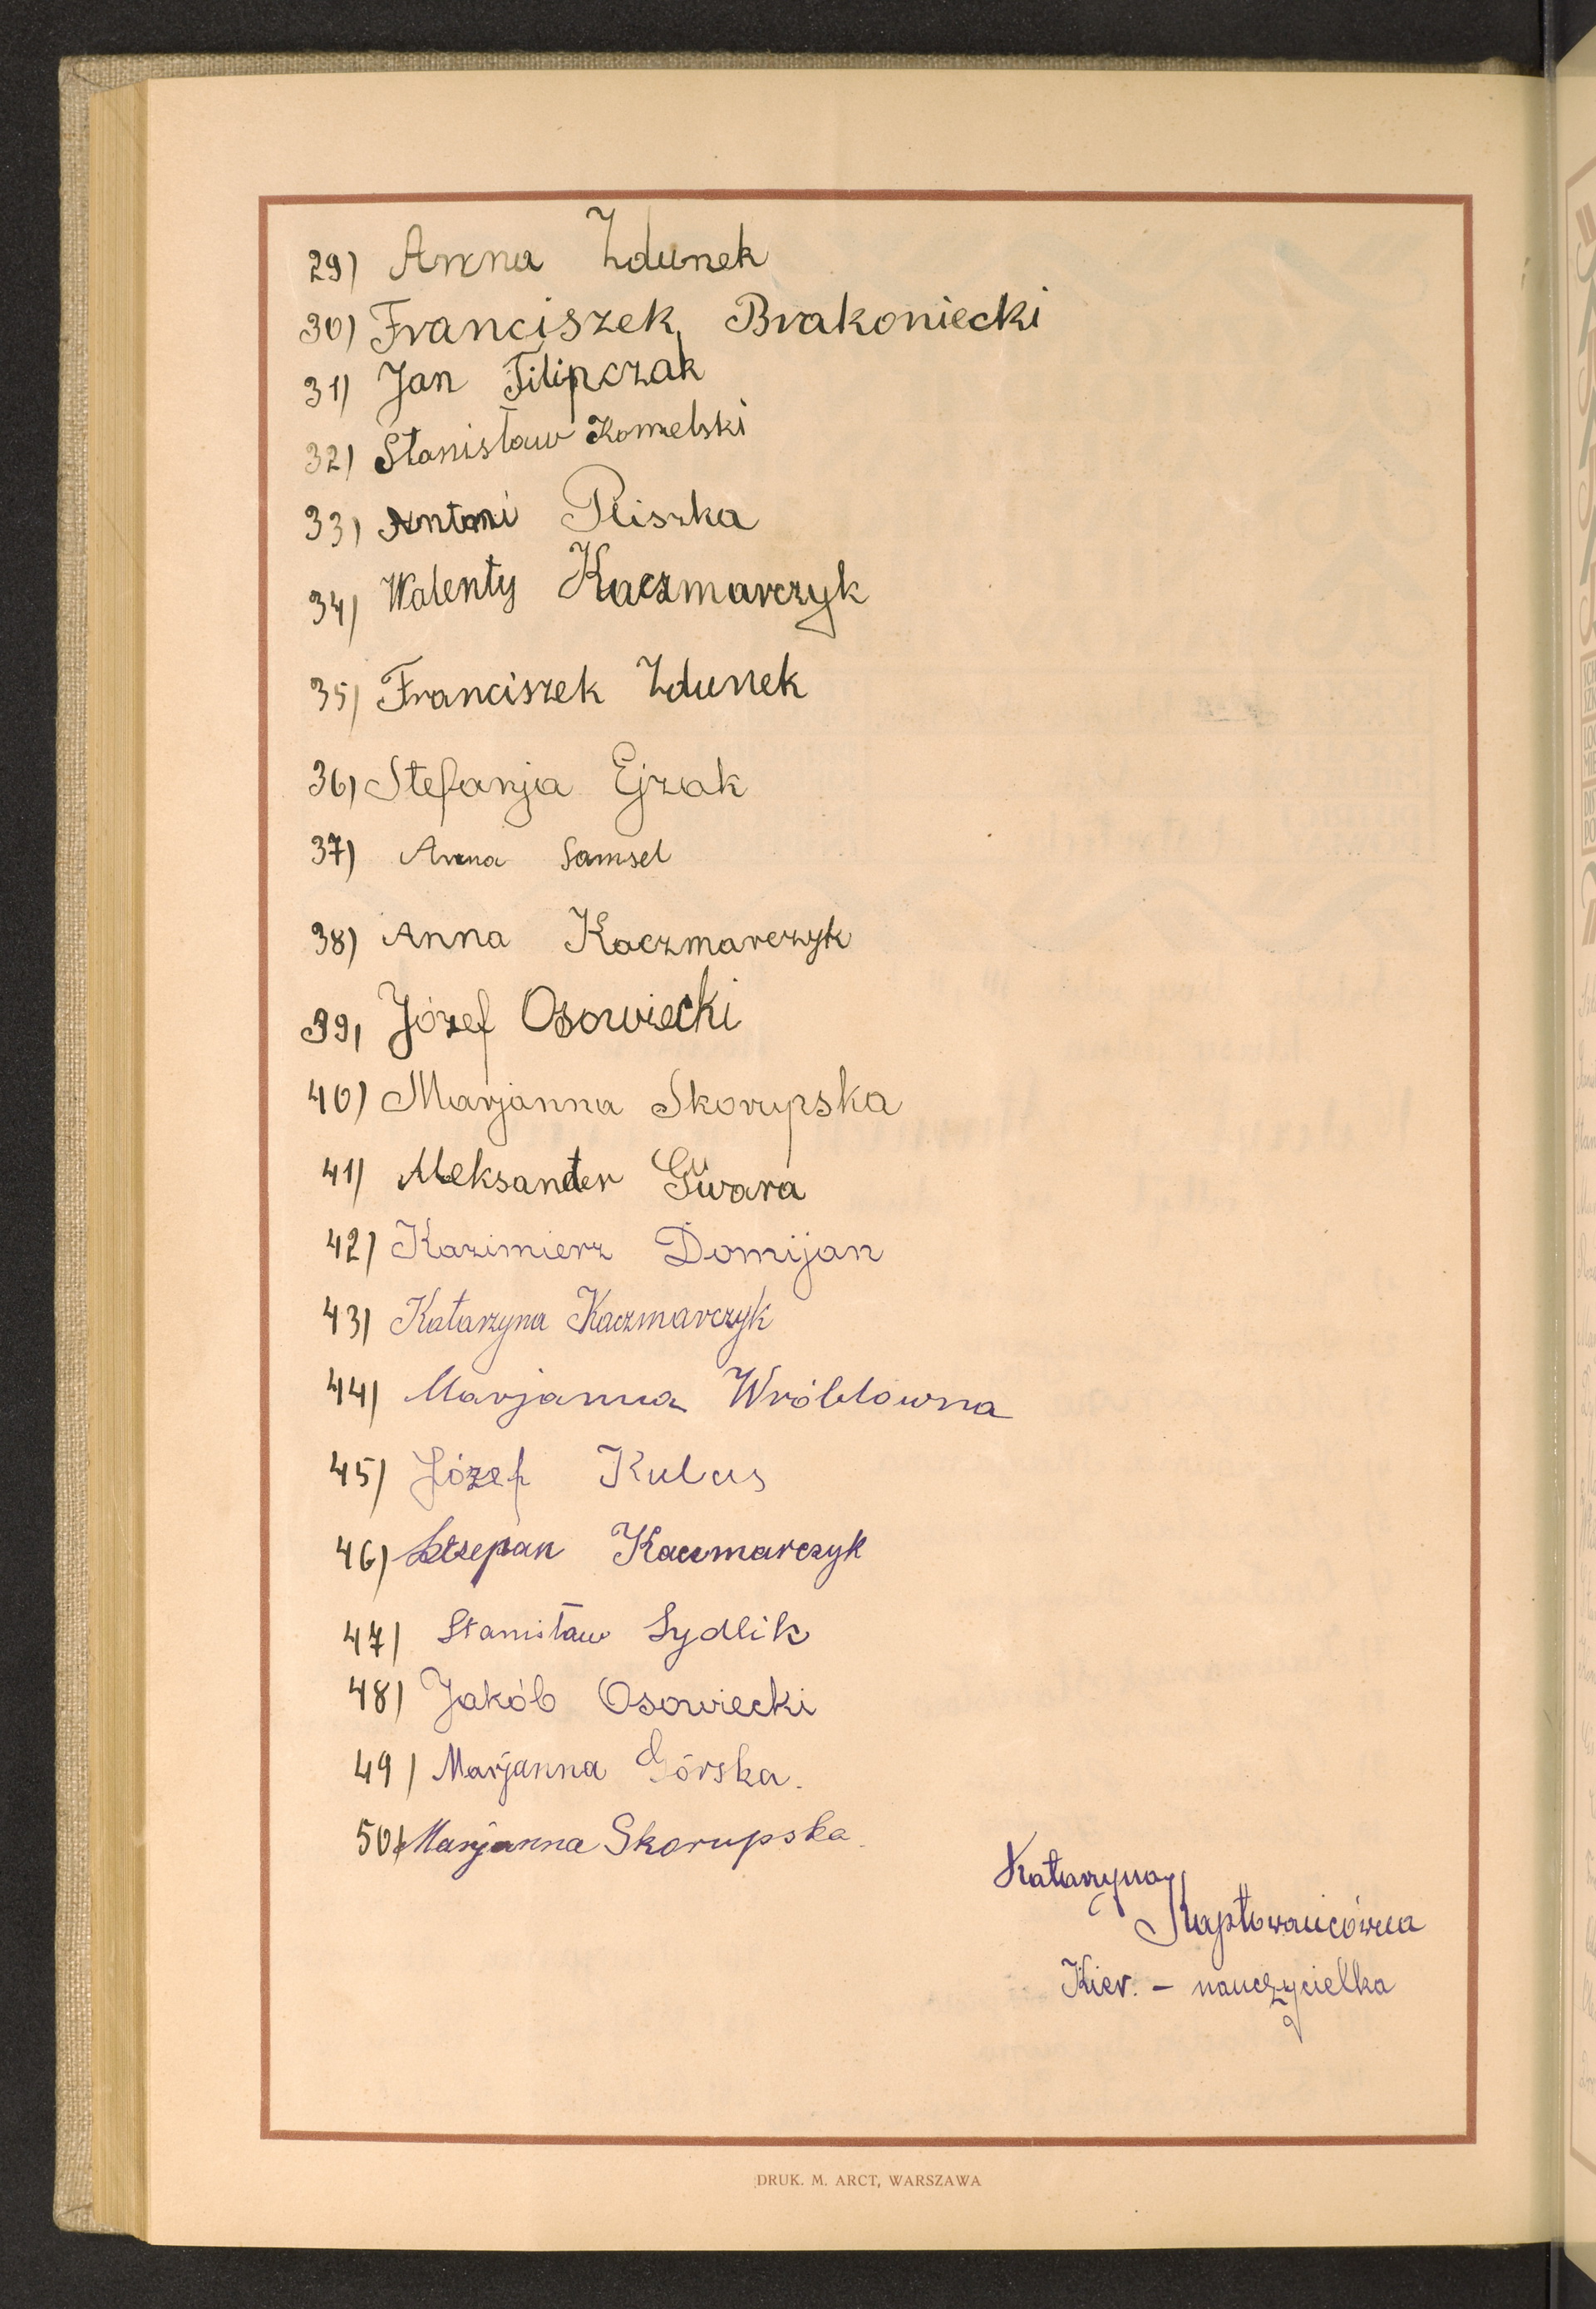 29) Anna Zdunek
30) Franciszek Brakoniecki
31) Jan Filipczak
32) Stanisław Komelski
33) Antoni Pliszka
34) Walenty Kaczmarczyk
35) Franciszek Zdunek
36) Stefanja Ejzak
37) Anna Samsel
38) Anna Kaczmarczyk
39) Józef Osowiecki
40) Marjanna Skorupska
41) Aleksander Gwara
42) Kazimierz Domijan
43) Katarzyna Kaczmarczyk
44) Marjanna Wróblowna
45) Józef Kulas
46) Kaczmarczyk
47) Stanisław Sydlik
48) Jakób Osowiecki
49) Marjanna Górska.
50) Marjanna Skorupska.
Katarzyna
Kapłowaicówna
Kier. – nauczycielka
DRUK. M. ARCT, WARSZAWA